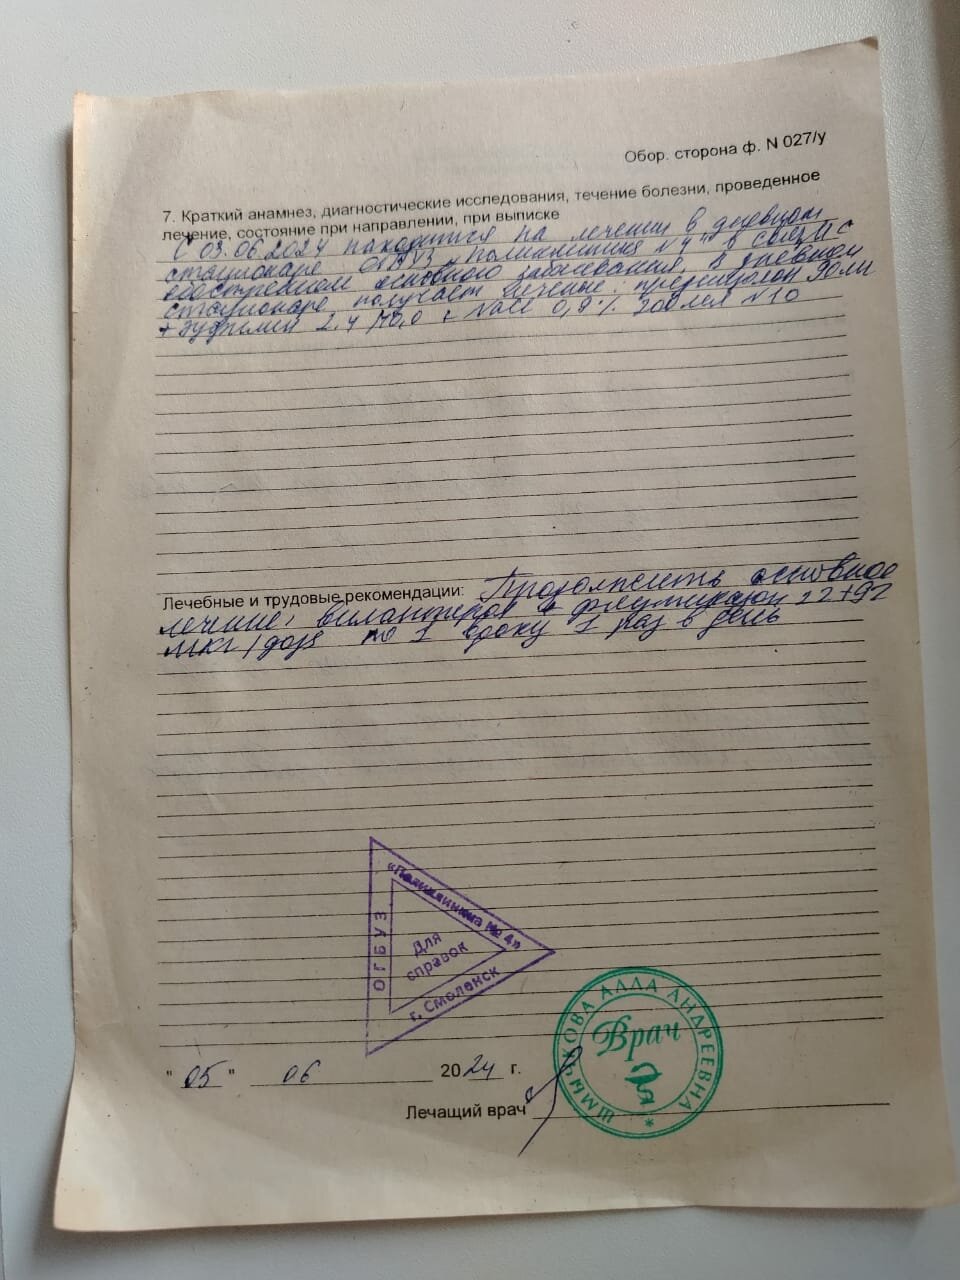 Обор. сторона ф. N 027/у
7. Краткий анамнез, диагностические исследования, течение болезни, проведенное
лечение, состояние при направлении, при выписке
С 03.06.2024 находится на лечении в дневном
стационаре ОГБУЗ "Поликлиника №4" в связи с
обострением основного заболевания. В дневном
стационаре получает лечение: преднизолон 90мг
+ эуфиллин 2,4 % 10,0 + NaCl 0,9% 200мл N10
Лечебные и трудовые рекомендации: Продолжить основное
лечение: вилантерол + флутиказон 22+92
мкг/доза по 1 вдоху 1 раз в день
ОГБУЗ
«Поликлиника № 4»
Для
справок
г. Смоленск
"05" 06 2024 г.
АЛЛА АНДРЕЕВНА
Врач
Лечащий врач